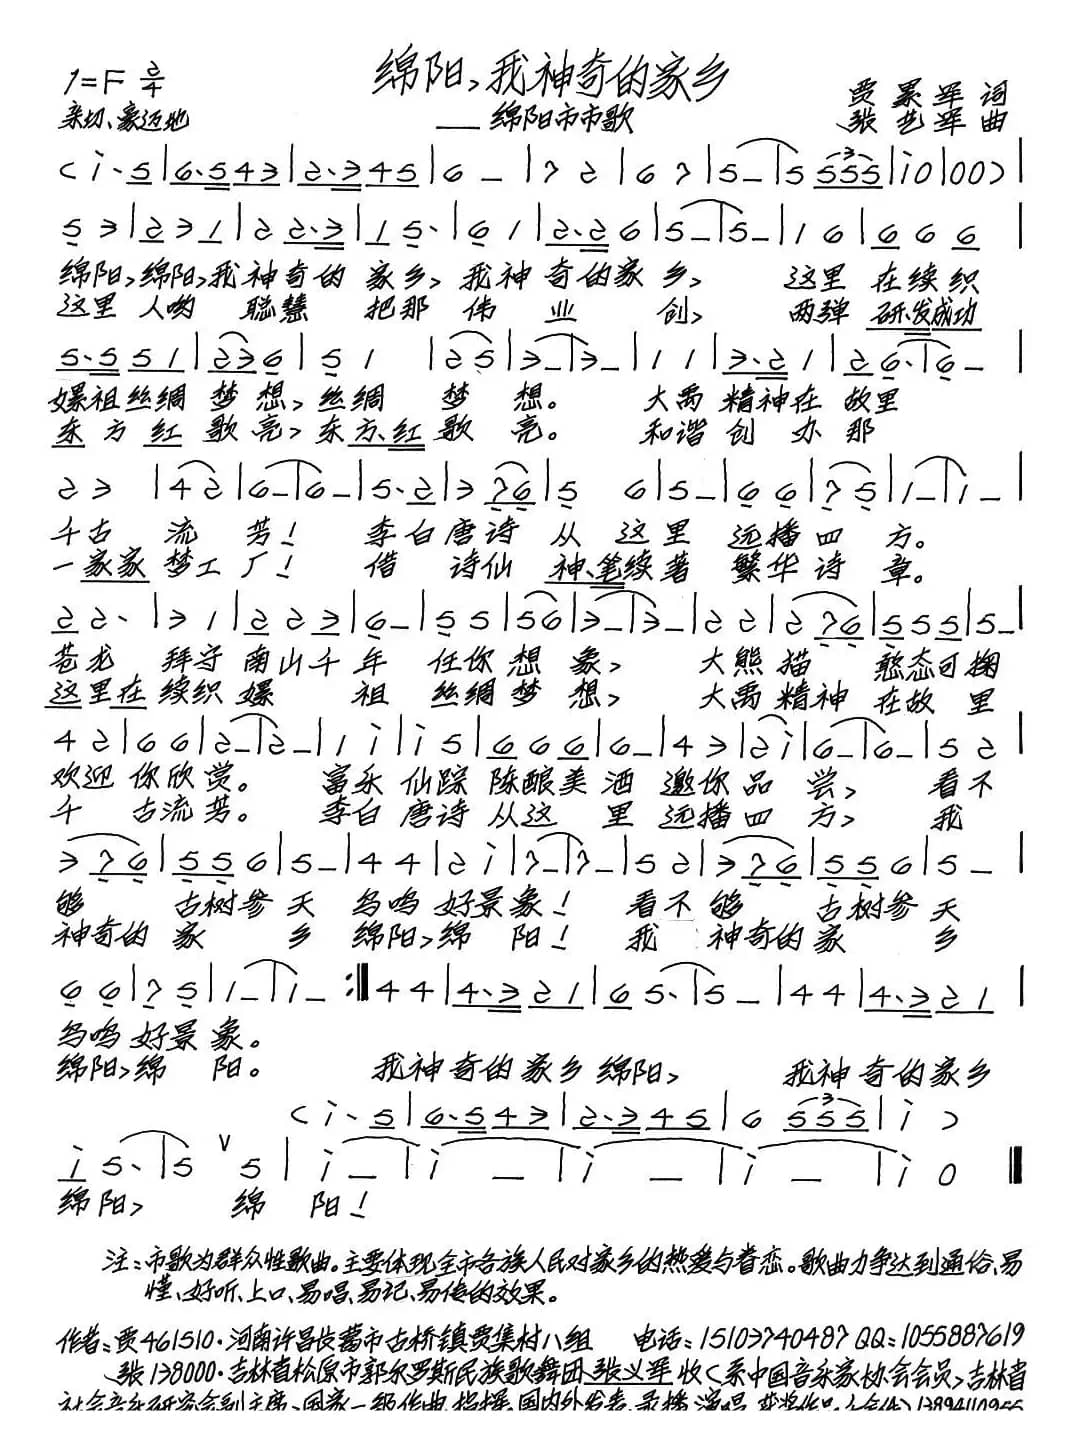 绵阳，我神奇的家乡
1=F 2/4
亲切、豪迈地
——绵阳市市歌
贾累军 词
张艺军 曲
(i· 5|6·5 4 3|2·3 4 5|6 —|7 2|6 7|5 —|5 5 5 5|i 0|0 0)|
5 3|2 3 1|2 2·3|1 5·|6 1|2·2 6|5 —|5 —|1 6|6 6 6|
绵阳，绵阳，我神奇的 家乡，我神奇的家 乡， 这里 在续织
这里 人哟 聪慧 把那 伟 业 创， 两弹 研发成功
5·5 5 1|2 3 6|5 1|2 5|3 —|3 —|1 1|3·2 1|2 6·|6 —|
嫘祖丝绸 梦 想，丝绸 梦 想。 大禹 精神在 故里
东方红 歌亮，东方红 歌 亮。 和谐 创 办 那
2 3|4 2|6 —|6 —|5·2|3 7 6|5 6|5 —|6 6|7 5|1 —|1 —|
千古 流 芳！ 李白唐诗 从 这里 远播四 方。
一家家 梦工 厂！ 借 诗仙 神笔续著 繁华诗 章。
2 2·|3 1|2 2 3|6 —|5 5|5 6|3 —|3 —|2 2|2 7 6|5 5 5|5 —|
苍龙 拜守 南山千 年 任你 想 象， 大熊 猫 憨态可掬
这里在 续织 嫘 祖 丝绸 梦 想， 大禹 精神 在故 里
4 2|6 6|2 —|2 —|1 i|i 5|6 6 6|6 —|4 3|2 i|6 —|6 —|5 2|
欢迎 你欣 赏。 富乐 仙踪 陈酿美 酒 邀你 品 尝， 看不
千 古流 芳。 李白 唐诗 从这 里 远播 四 方， 我
3 7 6|5 5 6|5 —|4 4|2 i|7 —|7 —|5 2|3 7 6|5 5 6|5 —|
够 古树参 天 鸟鸣 好景 象！ 看不 够 古树参 天
神奇的 家 乡 绵阳，绵 阳！ 我 神奇的 家 乡
6 6|7 5|1 —|1 — :‖4 4|4·3 2 1|6 5·|5 —|4 4|4·3 2 1|
鸟鸣 好景 象。
绵阳，绵 阳。 我神 奇的 家乡 绵阳， 我神 奇的家乡
(i· 5|6·5 4 3|2·3 4 5|6 5 5 5|i )
i 5·|5 ∨ 5|i —|i —|i —|i —|i 0‖
绵阳， 绵 阳！
注：市歌为群众性歌曲。主要体现全市各族人民对家乡的热爱与眷恋。歌曲力争达到通俗、易
懂、好听、上口、易唱、易记、易传的效果。
作者：贾461510·河南许昌长葛市古桥镇贾集村八组 电话：15103740487 QQ：1055887619
张138000·吉林省松原市郭尔罗斯民族歌舞团 张义军 收（系中国音乐家协会会员，吉林省